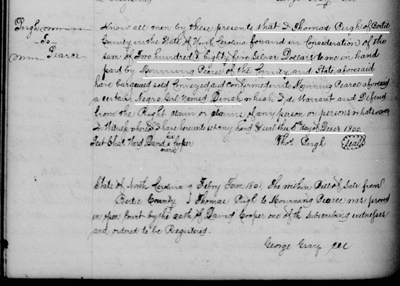 Pugh
To
Pearce
Know all men by these presents that I Thomas Pugh of Bertie
County in the State of North Carolina for and in Consideration of the
sum of Two hundred & Eighty five Silver Dollars to me in hand
paid by Mourning Pearce of the County and State aforesaid
have bargained sold Conveyed and Confirmed unto Mourning Pearce aforesaid
a certain Negro Girl named Dinah which I do Warrant and Defend
from the Right claim or claims of any person or persons whatsoever
In Witness whereof I have hereunto set my hand & Seal this day of Decr 1800.
Test Chat Ward David Cooper Thos Pugh Seal
State of North Carolina Febry Term 1801. The within Bill of Sale from
Bertie County Thomas Pugh to Mourning Pearce was proved
in open Court by the oath of David Cooper one of the subscribing witnesses
and ordered to be Registered.
George Gray